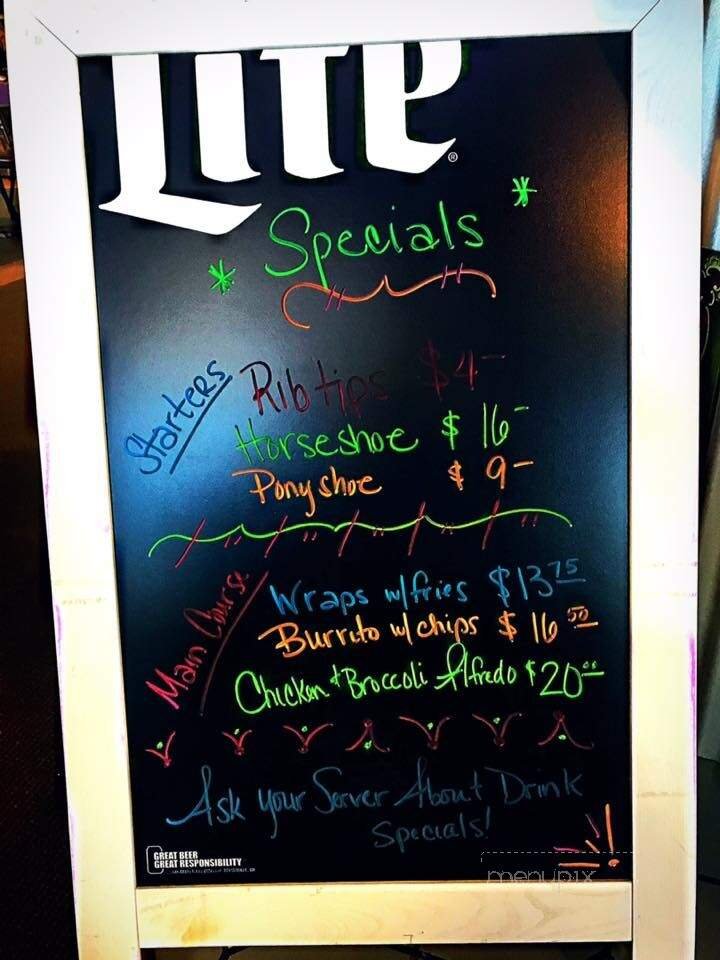 Lite ®
* Specials *
Starters
Rib tips $4-
Horseshoe $16-
Ponyshoe $9-
Main Course
Wraps w/fries $13 75
Burrito w/chips $16 50
Chicken + Broccoli Alfredo $20 00
Ask your Server About Drink
Specials!
GREAT BEER
GREAT RESPONSIBILITY
menupix